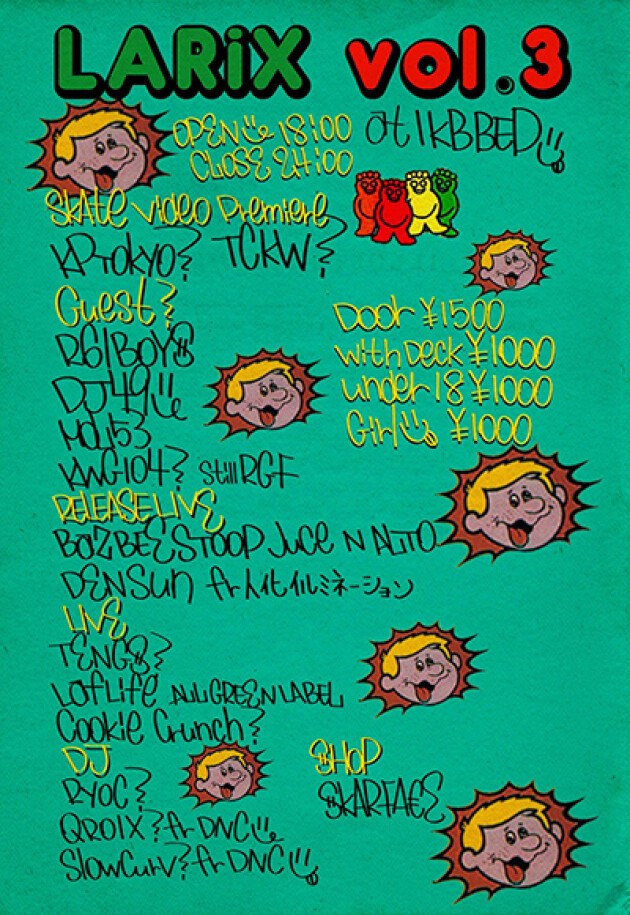 LARiX vol.3
OPEN 18:00
CLOSE 24:00
at 1KBBED
Skate video Premiere
KP TOKYO
TCKW
Guest
Door ¥1500
with Deck ¥1000
under 18 ¥1000
Girl ¥1000
DJ 49
Still RGF
RELEASE LIVE
BAZBEE STOOP Juce N ALTO
DENSUN fr 人イルミネーション
LIVE
TENG8
LafLife ALLGREEN LABEL
Cookie Crunch
DJ
RYOC
QROIX fr DNC
SlowCurv fr DNC
SHOP
SKARFACE